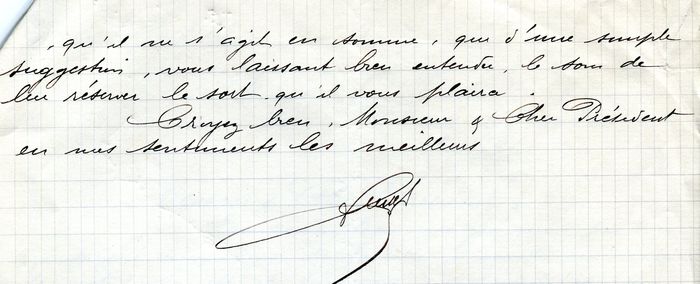 , qu'il ne s'agit en somme, que d'une simple
suggestion, vous laissant bien entendu, le soin de
leur réserver le sort qu'il vous plaira.
Croyez bien, Monsieur & Cher Président
en mes sentiments les meilleurs